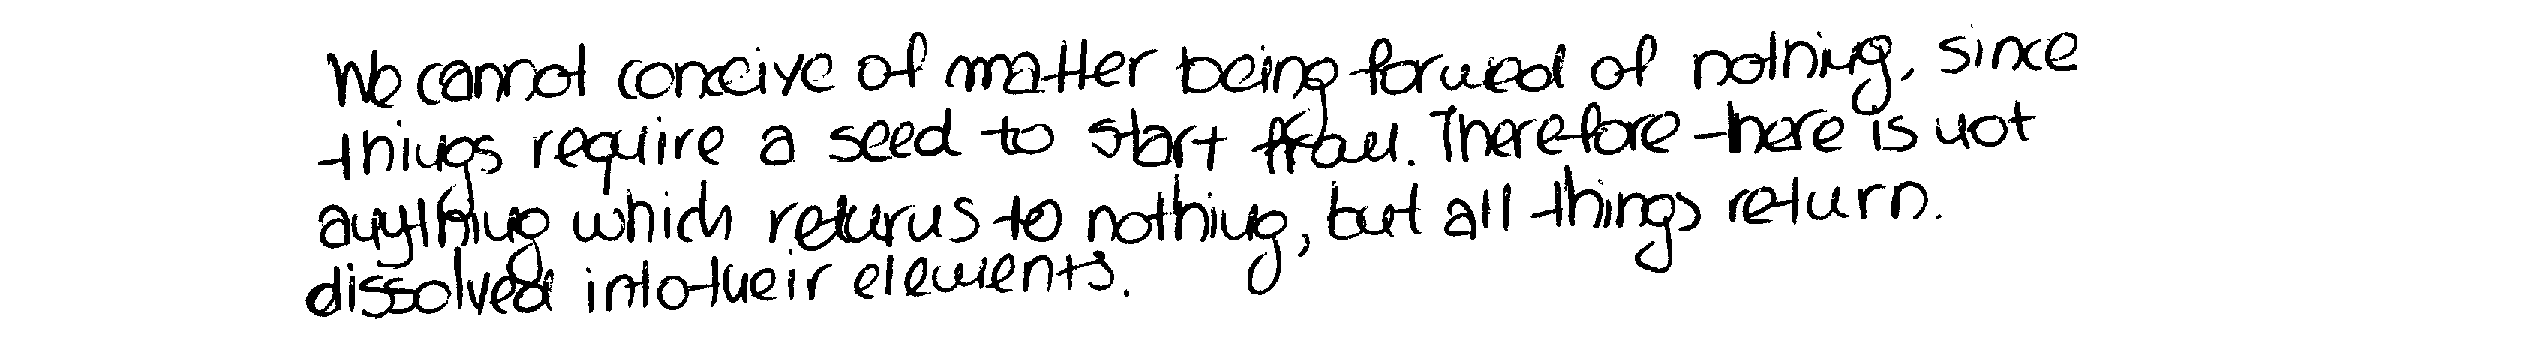 We cannot conceive of matter being formed of nothing, since
things require a seed to start from. Therefore there is not
anything which returns to nothing, but all things return.
dissolved into their elements.